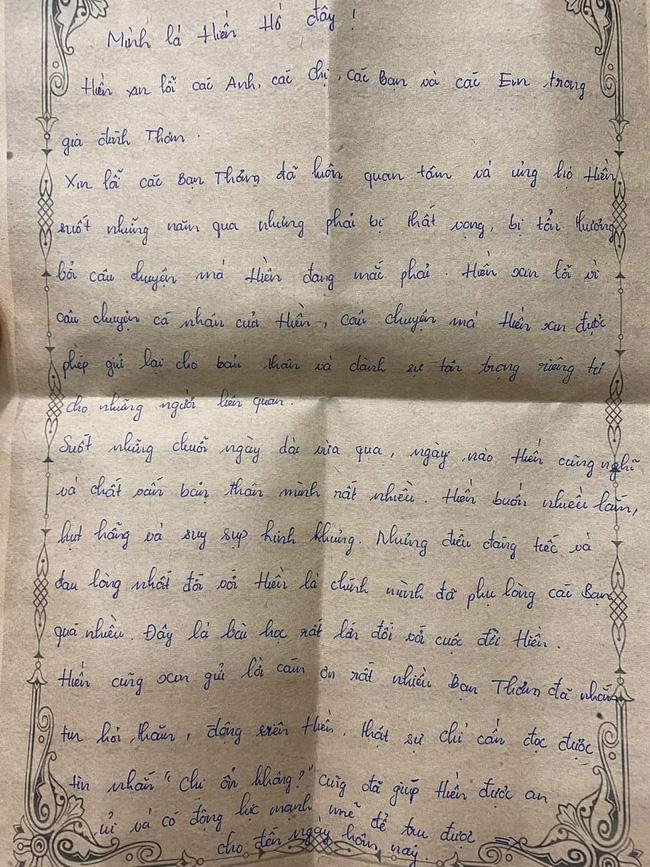 Mình là Hiền Hồ đây !
Hiền xin lỗi các Anh, các chị, các Bạn và các Em trong
gia đình Thơm .
Xin lỗi các Bạn Thơm đã luôn quan tâm và ủng hộ Hiền
suốt những năm qua nhưng phải bị thất vọng, bị tổn thương
bởi câu chuyện mà Hiền đang mắc phải . Hiền xin lỗi vì
câu chuyện cá nhân của Hiền, câu chuyện mà Hiền xin được
phép gửi lại cho bản thân và dành sự tôn trọng riêng tư
cho những người liên quan .
Suốt những chuỗi ngày dài vừa qua, ngày nào Hiền cũng nghĩ
và chất vấn bản thân mình rất nhiều . Hiền buồn nhiều lắm,
hụt hẫng và suy sụp kinh khủng. Nhưng điều đáng tiếc và
đau lòng nhất đối với Hiền là chính mình đã phụ lòng các Bạn
quá nhiều . Đây là bài học rất lớn đối với cuộc đời Hiền .
Hiền cũng xin gửi lời cảm ơn rất nhiều Bạn Thơm đã nhắn
tin hỏi thăm, động viên Hiền, thật sự chỉ cần đọc được
tin nhắn "Chị ổn không?" cũng đã giúp Hiền được an
ủi và có động lực mạnh mẽ để trụ được
cho đến ngày hôm nay .